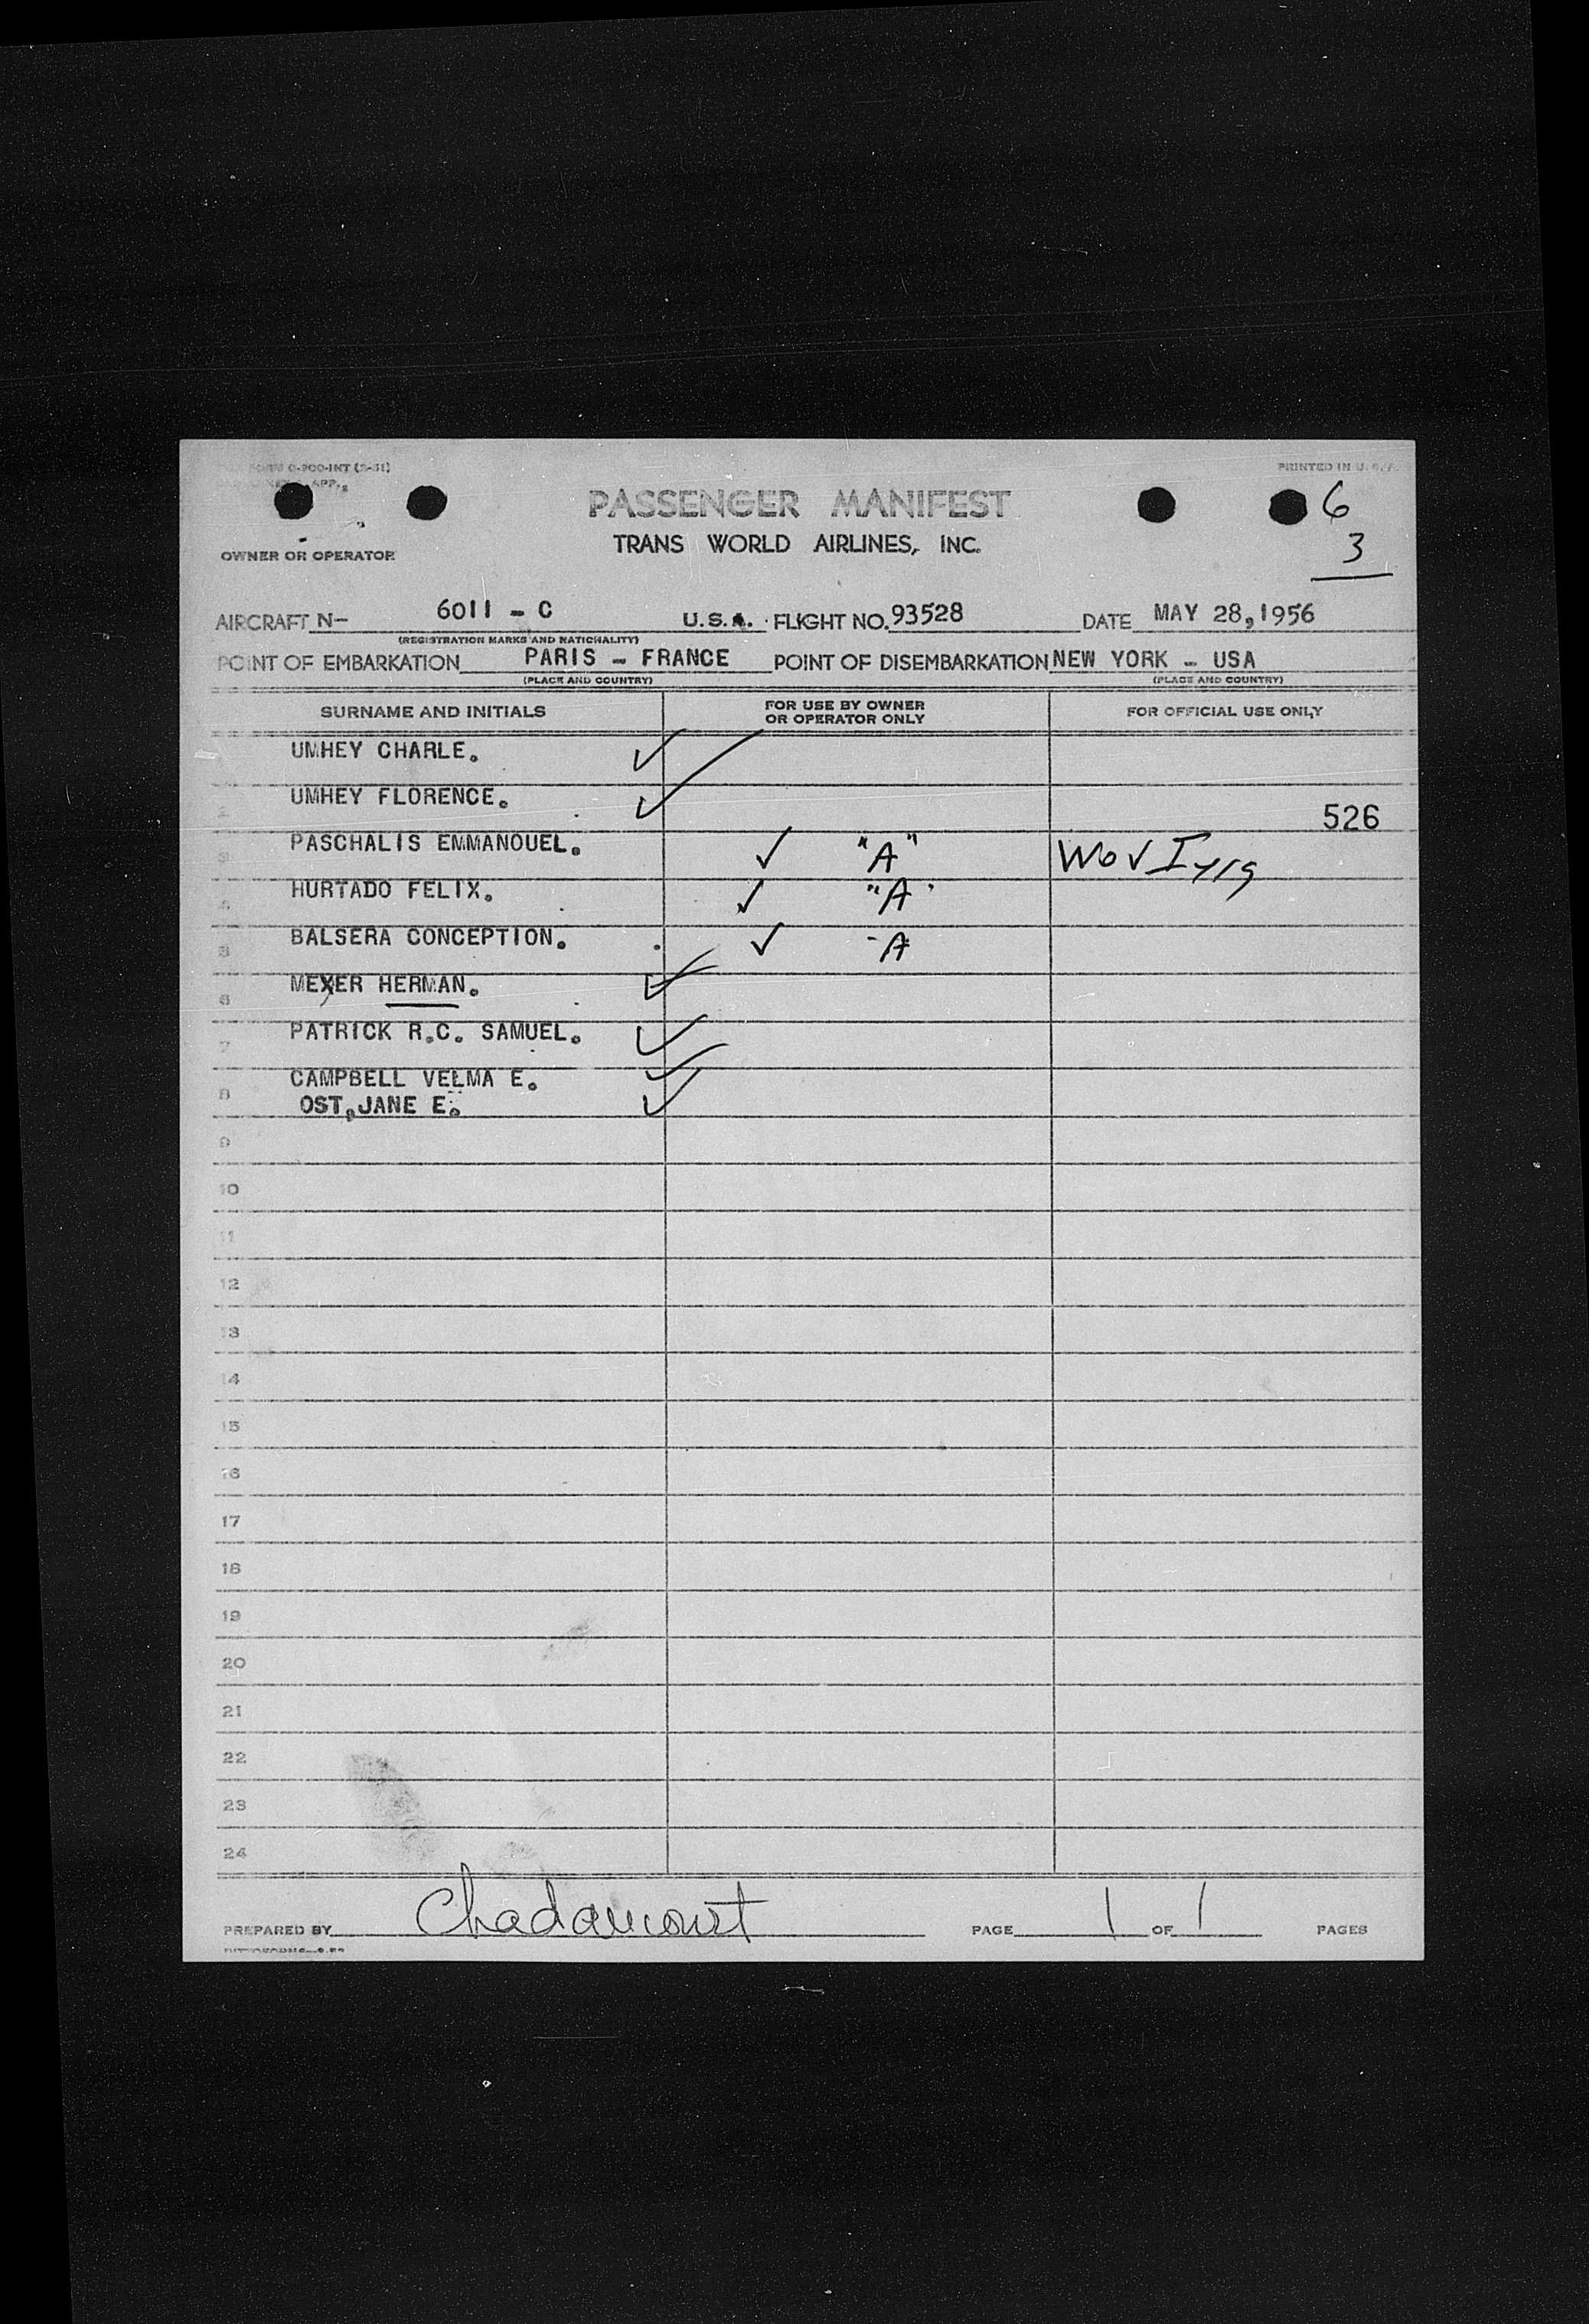 FORM O-900-INT (2-51)
PRINTED IN U.S.A.
APP.
PASSENGER MANIFEST
6
TRANS WORLD AIRLINES, INC.
3
OWNER OR OPERATOR
AIRCRAFT N- 6011 - C U.S.A. FLIGHT NO. 93528 DATE MAY 28,1956
(REGISTRATION MARKS AND NATIONALITY)
POINT OF EMBARKATION PARIS - FRANCE POINT OF DISEMBARKATION NEW YORK - USA
(PLACE AND COUNTRY) (PLACE AND COUNTRY)
SURNAME AND INITIALS FOR USE BY OWNER OR OPERATOR ONLY FOR OFFICIAL USE ONLY
UMHEY CHARLE. ✓
2 UMHEY FLORENCE. ✓ 526
3 PASCHALIS EMMANOUEL. ✓ "A"
4 HURTADO FELIX. ✓ "A"
5 BALSERA CONCEPTION. ✓ -A
6 MEYER HERMAN. ✓
7 PATRICK R.C. SAMUEL. ✓
8 CAMPBELL VELMA E. ✓
OST,JANE E. ✓
9
10
11
12
13
14
15
16
17
18
19
20
21
22
23
24
PREPARED BY PAGE 1 OF 1 PAGES